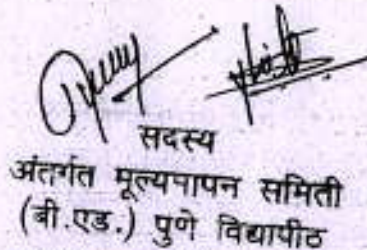 सदस्य
अंतर्गत मूल्यमापन समिती
(बी.एड.) पुणे विद्यापीठ